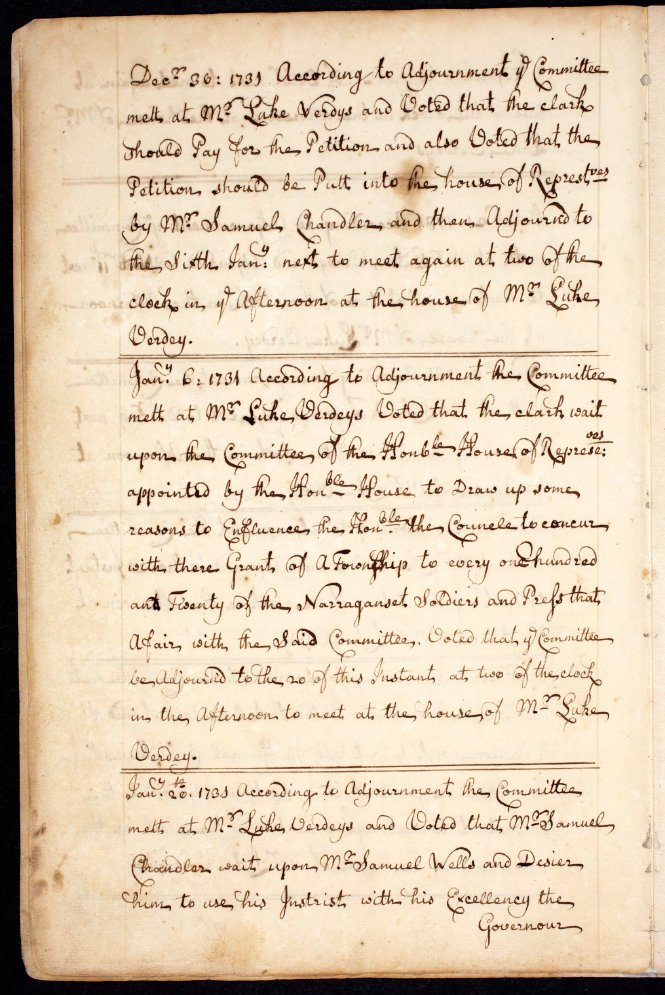 Decr. 30: 1731 According to Adjournment ye Committee
mett at Mr. Luke Verdys and Voted that the clark
should Pay for the Petition and also Voted that the
Petition should be Putt into the house of Represtves
by Mr. Samuel Chandler and then Adjournd to
the Sixth Jany. next to meet again at two of the
clock in ye Afternoon at the house of Mr. Luke
Verdey.
Jany. 6: 1731 According to Adjournment the Committee
mett at Mr. Luke Verdeys Voted that the clark wait
upon the Committee of the Honble House of Represeves:
appointed by the Honble House to Draw up some
reasons to Enfluence the Honble the Councle to concur
with there Grant of A Township to every one hundred
and Twenty of the Narraganset Soldiers and Press that
Afair with the Said Committee. Voted that ye Committee
be Adjournd to the 20 of this Instant at two of the clock
in the Afternoon to meet at the house of Mr. Luke
Verdey.
Jany. 20th. 1731 According to Adjournment the Committee
mett at Mr. Luke Verdeys and Voted that Mr. Samuel
Chandler wait upon Mr. Samuel Wells and Desier
him to use his Instrist with his Excellency the
Governour